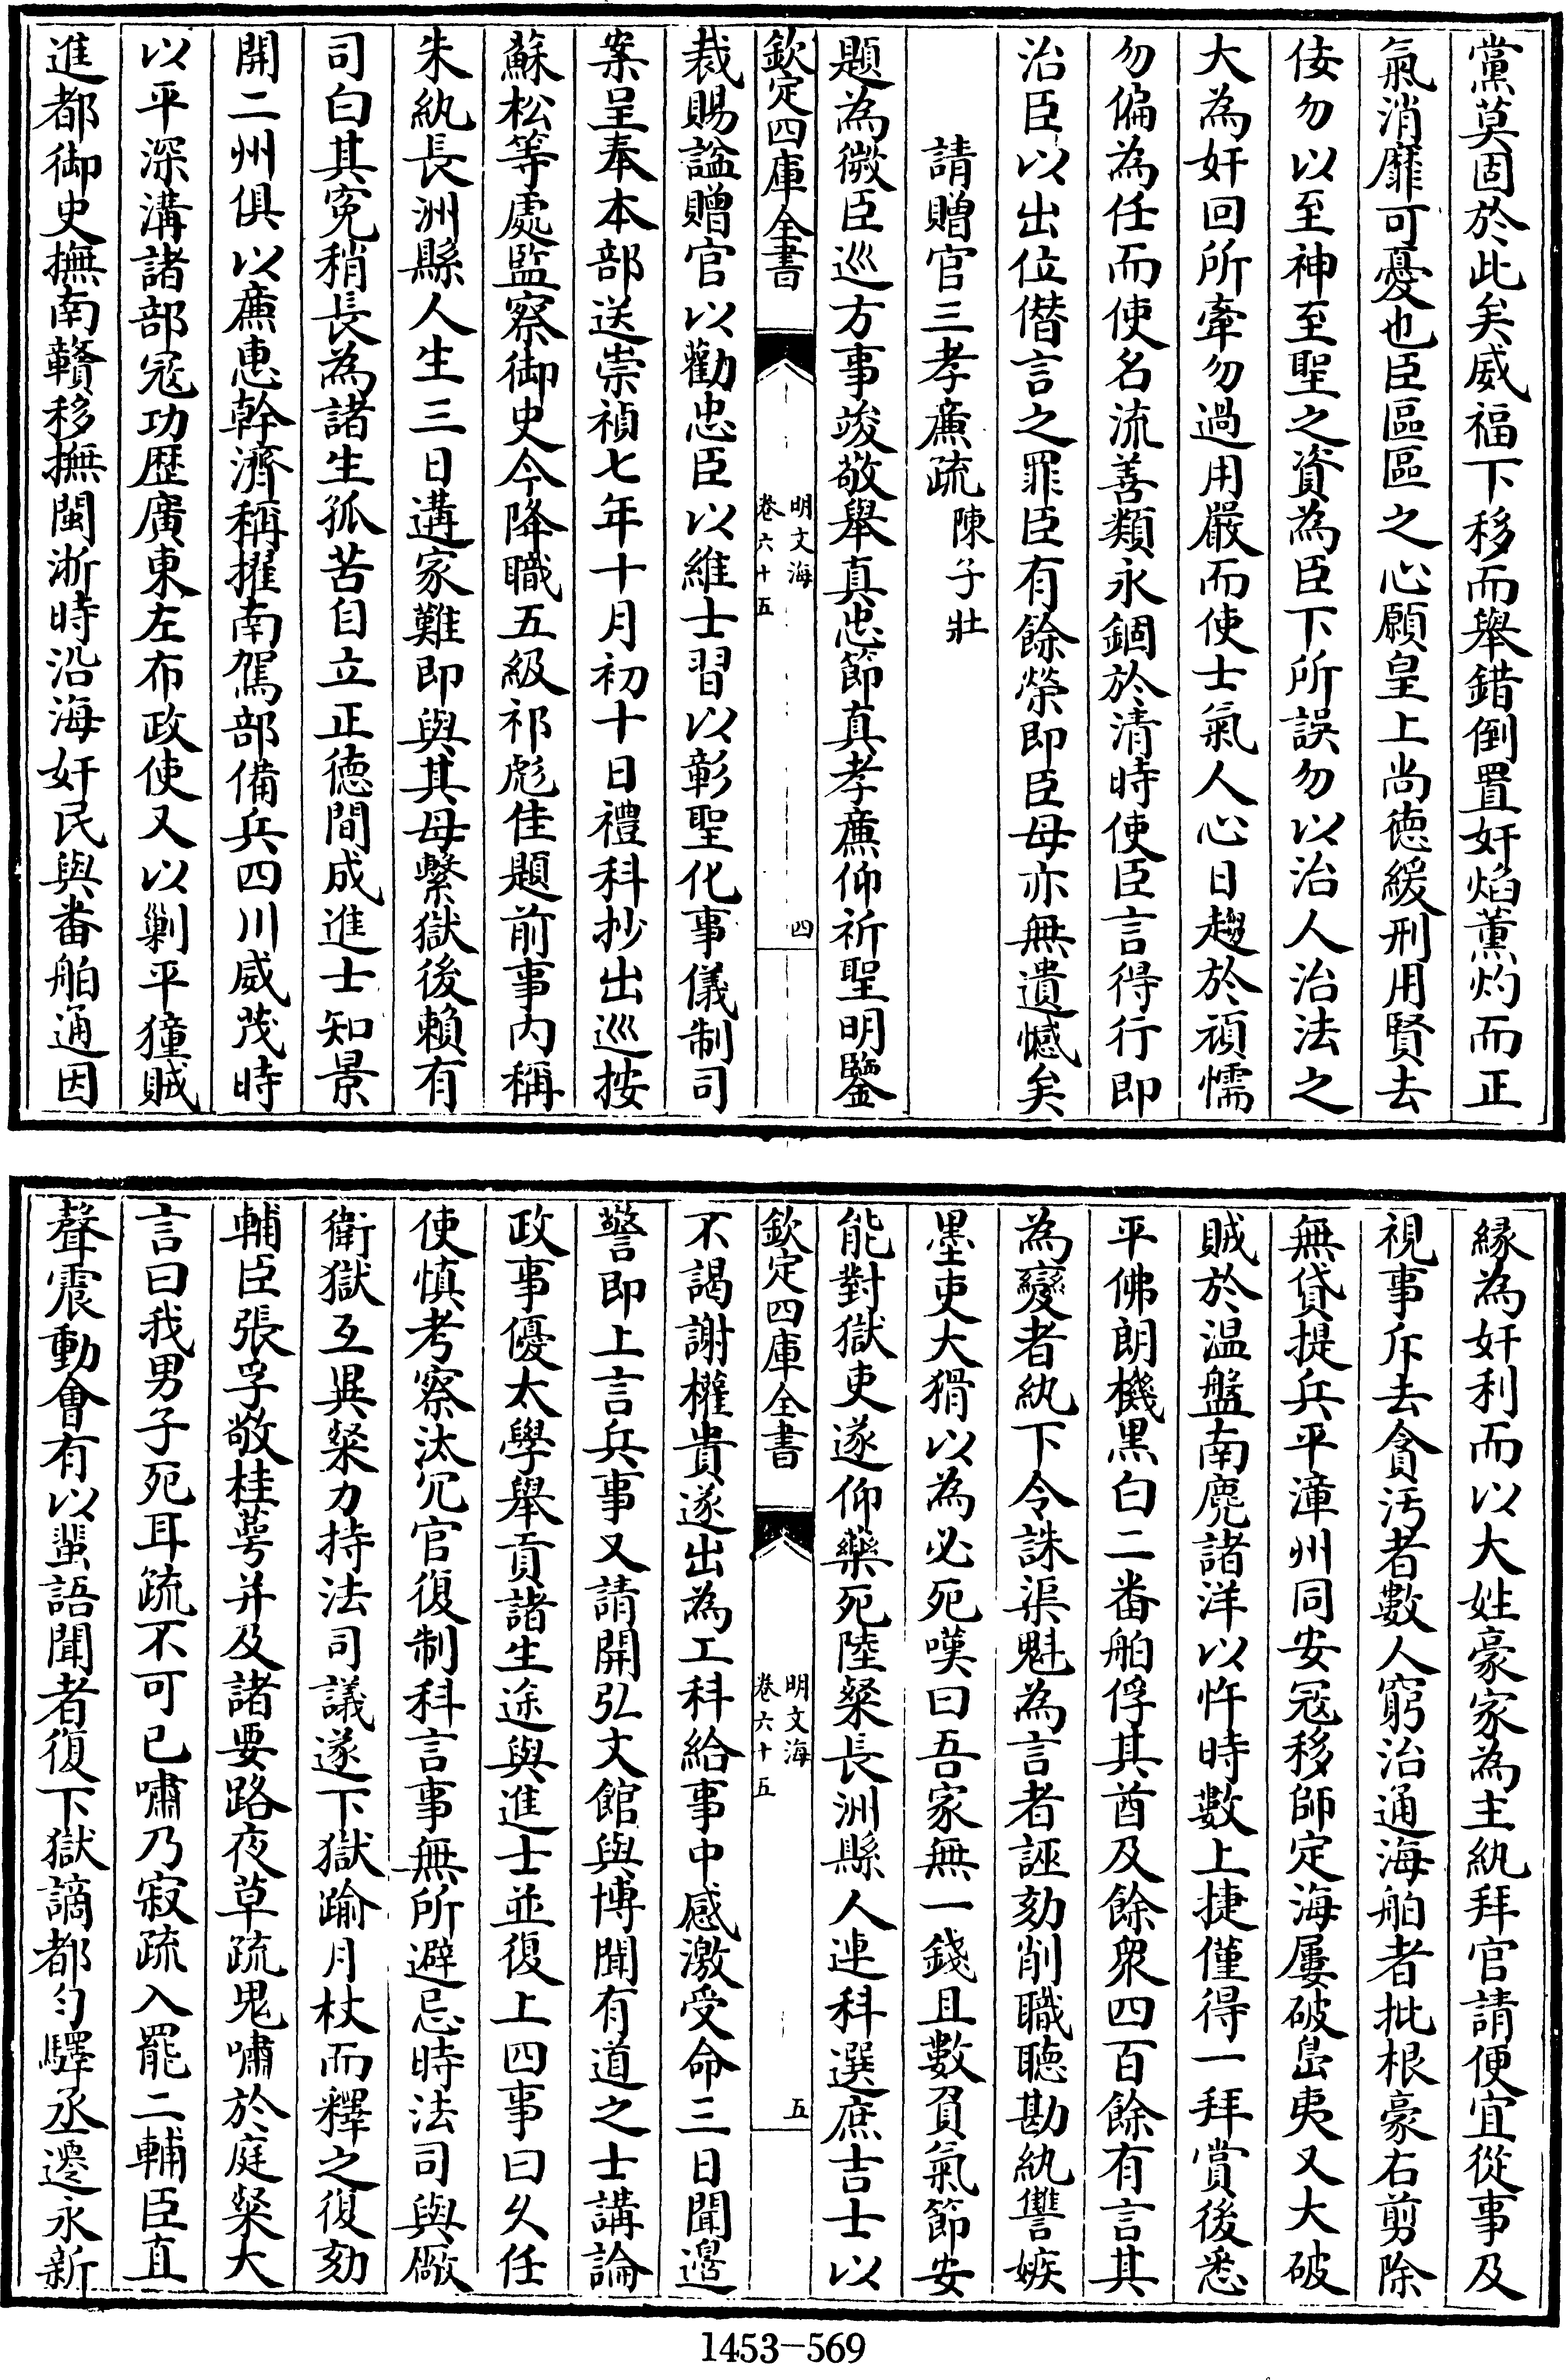 黨莫固於此矣威福下移而舉錯倒置奸焰薰灼而正
氣消靡可憂也臣區區之心願皇上尚徳緩刑用賢去
佞勿以至神至聖之資為臣下所誤勿以治人治法之
大為奸回所牽勿過用嚴而使士氣人心日趨於頑懦
勿偏為任而使名流善類永錮於清時使臣言得行即
治臣以出位僭言之罪臣有餘榮即臣母亦無遺憾矣
請贈官三孝廉疏陳子壯
題為微臣巡方事竣敬舉真忠節真孝廉仰祈聖明鑒
欽定四庫全書
明文海
卷六十五
四
裁賜諡贈官以勸忠臣以維士習以彰聖化事儀制司
案呈奉本部送崇禎七年十月初十日禮科抄出巡按
蘇松等處監察御史今降職五級祁彪佳題前事内稱
朱紈長洲縣人生三日遘家難即與其母繫獄後賴有
司白其寃稍長為諸生孤苦自立正徳間成進士知景
開二州俱以廉惠幹濟稱擢南駕部備兵四川威茂時
以平深溝諸部冦功歴廣東左布政使又以剿平獞賊
進都御史撫南贛移撫閩浙時沿海奸民與番舶通因
縁為奸利而以大姓豪家為主紈拜官請便宜從事及
視事斥去貪汚者數人窮治通海舶者批根豪右剪除
無貸提兵平漳州同安冦移師定海屢破島夷又大破
賊於温盤南麂諸洋以忤時數上捷僅得一拜賞後悉
平佛朗機黒白二番舶俘其酋及餘衆四百餘有言其
為變者紈下令誅渠魁為言者誣劾削職聽勘紈讐嫉
墨吏大猾以為必死嘆曰吾家無一錢且數負氣節安
能對獄吏遂仰藥死陸粲長洲縣人連科選庶吉士以
欽定四庫全書
明文海
卷六十五
五
不謁謝權貴遂出為工科給事中感激受命三日聞邊
警即上言兵事又請開弘文館與博聞有道之士講論
政事優太學舉貢諸生途與進士並復上四事曰乆任
使慎考察汰冗官復制科言事無所避忌時法司與廠
衛獄互異粲力持法司議遂下獄踰月杖而釋之復劾
輔臣張孚敬桂萼并及諸要路夜草疏鬼嘯於庭粲大
言曰我男子死耳疏不可已嘯乃寂疏入罷二輔臣直
聲震動會有以蜚語聞者復下獄謫都勻驛丞遷永新
1453-569